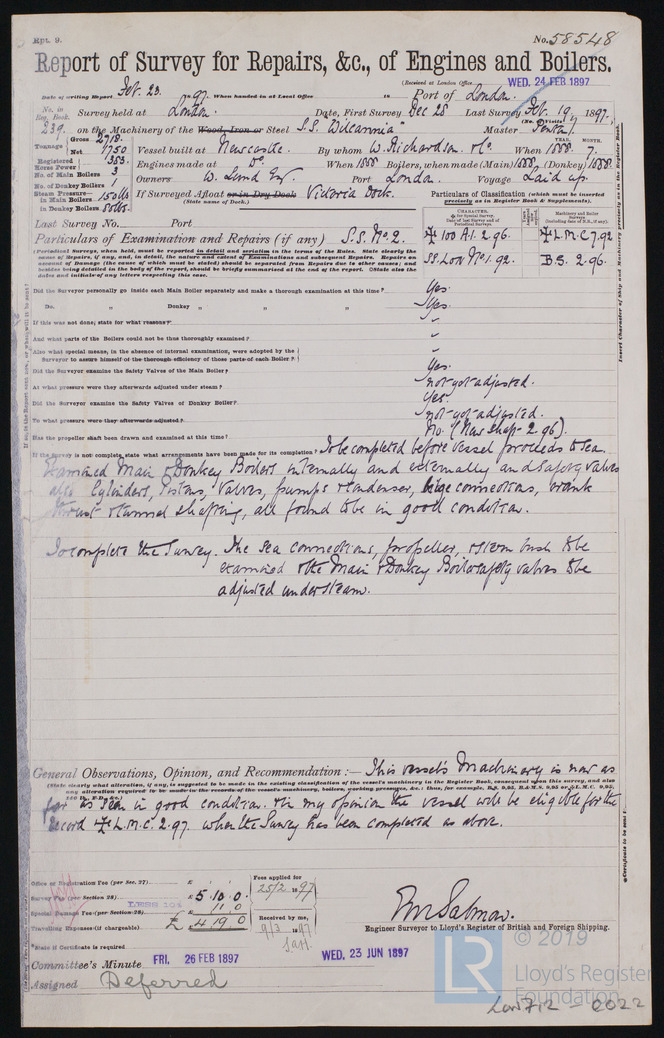 Rpt. 9.
No. 58548
Report of Survey for Repairs, &c., of Engines and Boilers.
(Received at London Office WED. 24 FEB 1897
Date of writing Report Feb. 23. 97. When handed in at Local Office 18 Port of London.
No. in Reg. Book. Survey held at London. Date, First Survey Dec 28 Last Survey Feb. 19 1897.
(No. of Visits)
239. on the Machinery of the Wood, Iron or Steel S.S. "Wilcannia" Master
Tonnage Gross 2718. Net 1750 Vessel built at Newcastle. By whom W. Richardson & Co. When 1888. YEAR. MONTH. 7.
Registered Horse Power 353. Engines made at Do. When 1888 Boilers, when made (Main) 1888 (Donkey) 1888.
No. of Main Boilers 3 Owners W. Lund Esq. Port London. Voyage Laid up.
No. of Donkey Boilers 1
Steam Pressure in Main Boilers 150 lbs If Surveyed Afloat or in Dry Dock Victoria Dock.
in Donkey Boilers 80 lbs. (State name of Dock.)
Particulars of Classification (which must be inserted precisely as in Register Book & Supplements).
Last Survey No. Port
CHARACTER. Machinery and Boiler Surveys (including date of N.B., if any).
Particulars of Examination and Repairs (if any) S.S. No. 2.
100 A.1. 2.96. L.M.C 7.92
SS. Lon No. 1. 92. B.S. 2.96.
Periodical Surveys, when held, must be reported in detail and seriatim in the terms of the Rules. State clearly the
cause of Repairs, if any, and, in detail, the nature and extent of Examinations and subsequent Repairs. Repairs on
account of Damage (the cause of which must be stated) should be separated from Repairs due to other causes; and
besides being detailed in the body of the report, should be briefly summarised at the end of the report. (State also the
dates and initials of any letters respecting this case.
Did the Surveyor personally go inside each Main Boiler separately and make a thorough examination at this time? Yes.
Do. " Donkey " " " Yes.
If this was not done; state for what reasons? -
And what parts of the Boilers could not be thus thoroughly examined? -
Also what special means, in the absence of internal examination, were adopted by the
Surveyor to assure himself of the thorough efficiency of those parts of each Boiler? -
Did the Surveyor examine the Safety Valves of the Main Boiler? Yes.
At what pressure were they afterwards adjusted under steam? not yet adjusted.
Did the Surveyor examine the Safety Valves of Donkey Boiler? Yes.
To what pressure were they afterwards adjusted? not yet adjusted.
Has the propeller shaft been drawn and examined at this time? No. (New Shaft 2.96).
If the survey is not complete, state what arrangements have been made for its completion? To be completed before vessel proceeds to sea.
Examined Main & Donkey Boilers internally and externally and safety valves
also Cylinders, Pistons, Valves, pumps & condenser, bilge connections, crank
thrust & tunnel shafting, all found to be in good condition.
To complete the Survey. The sea connections, propeller, & stern bush to be
examined & the Main & Donkey Boiler safety valves to be
adjusted under steam.
General Observations, Opinion, and Recommendation:— This vessel's Machinery is now as
(State clearly what alteration, if any, is suggested to be made in the existing classification of the vessel's machinery in the Register Book, consequent upon this survey, and also
any alteration required to be made in the records of the vessel's machinery, boilers, working pressures, &c.: thus, for example,
far as seen in good condition. In my opinion the vessel will be eligible for the
record L.M.C. 2.97. when the Survey has been completed as above.
Office or Registration Fee (per Sec. 27) £
Survey Fee (per Section 28) £ 5 10 0
LESS 10%
Special Damage Fee (per Section 28) £ 11 0
Travelling Expenses (if chargeable) £ 4 19 0
Fees applied for 25/2 1897
Received by me, 9/3 1897
Engineer Surveyor to Lloyd's Register of British and Foreign Shipping.
State if Certificate is required
Committee's Minute FRI. 26 FEB 1897 WED. 23 JUN 1897
Assigned Deferred
Insert Character of Ship and Machinery precisely as in the Register Book.
© 2019
LR
Lloyd's Register
Foundation
Lon712 - 0022